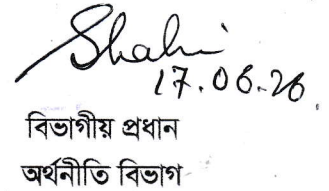 Shahi
17.06.26
বিভাগীয় প্রধান
অর্থনীতি বিভাগ